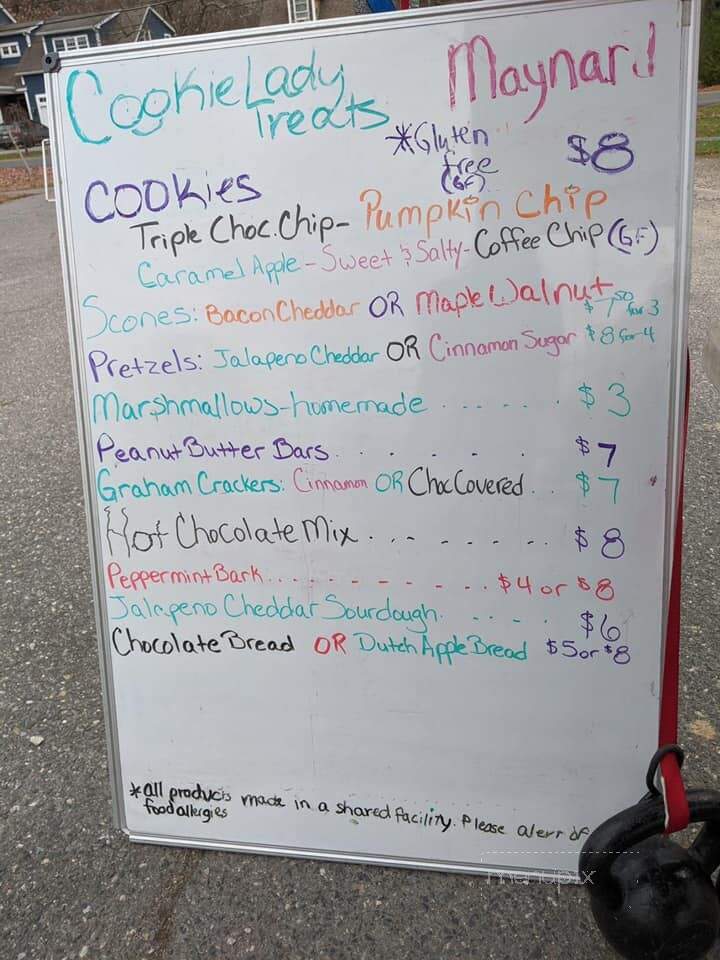 CookieLady Maynard
Treats
*Gluten
free
(GF)
$8
COOKIES
Triple Choc.Chip- Pumpkin Chip
Caramel Apple - Sweet & Salty - Coffee Chip (GF)
Scones: Bacon Cheddar OR Maple Walnut
$7.50 for 3
Pretzels: Jalapeno Cheddar OR Cinnamon Sugar $8 for 4
Marshmallows-homemade ...... $3
Peanut Butter Bars. . . . . . $7
Graham Crackers: Cinnamon OR Choc Covered. . $7
Hot Chocolate Mix . . . - - - - . . $8
Peppermint Bark... . - - - - - - . . . $4 or $8
Jalapeno Cheddar Sourdough. . . . . . $6
Chocolate Bread OR Dutch Apple Bread $5 or $8
*all products made in a shared facility. Please alert of
food allergies
menupix